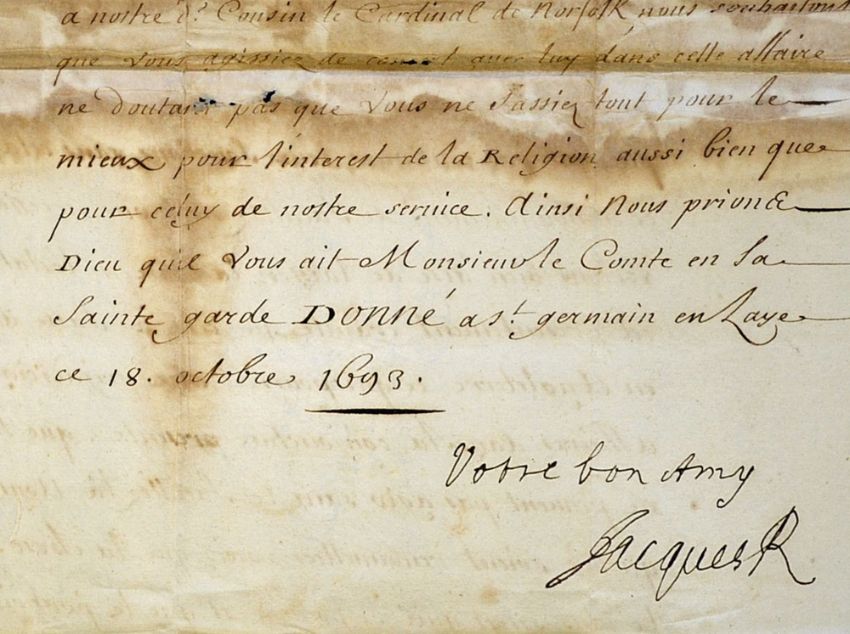 a nostre d.t Cousin le Cardinal de Norfolk nous souhaitons
que vous agissiez de concert avec luy dans cette affaire
ne doutant pas que vous ne fassiez tout pour le
mieux pour l'interest de la Religion aussi bien que
pour celuy de nostre service. Ainsi Nous prions
Dieu qu'il Vous ait Monsieur le Comte en sa
Sainte garde DONNÉ a s.t germain en Laye
ce 18. octobre 1693.
Votre bon Amy
Jacques R